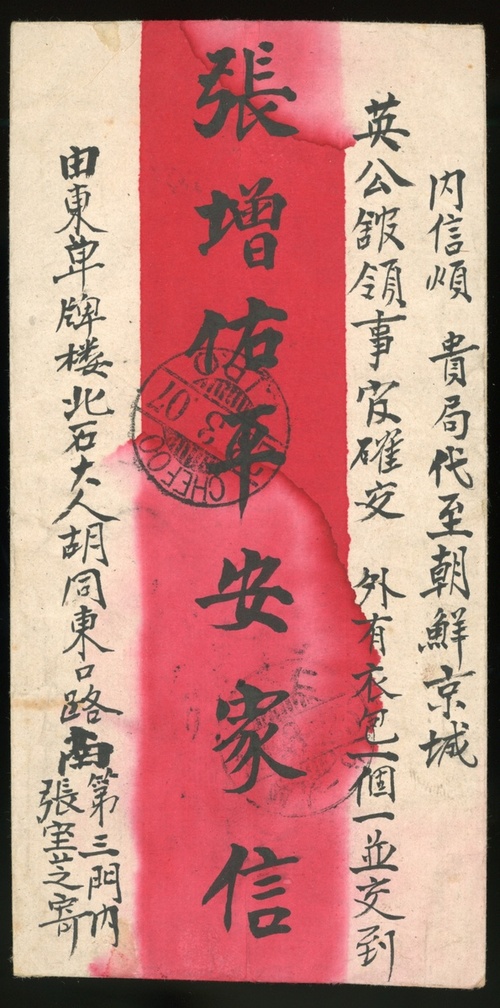 内信煩 貴局代至朝鮮京城
英公舘領事官確交 外有衣包一個一並交到
張增佑平安家信
CHEFOO
3
07
由東单牌楼北石大人胡同東口路南第三門内
張芝寄